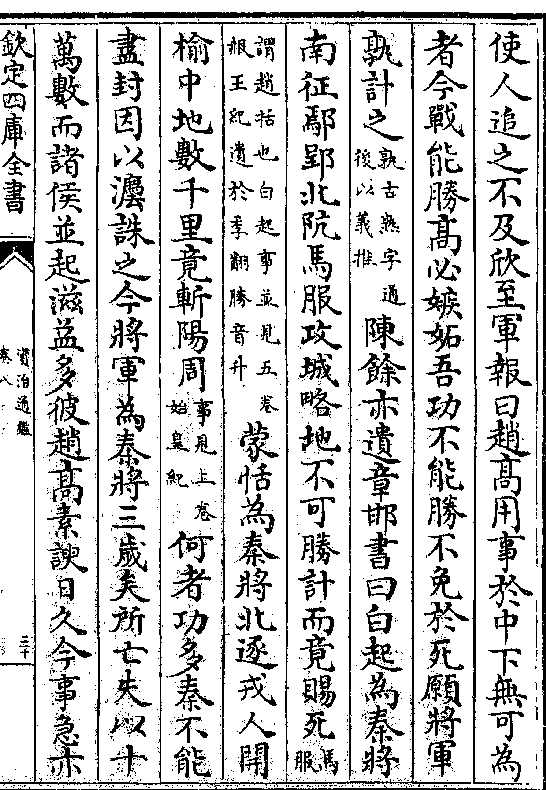 使人追之不及欣至軍報曰趙髙用事於中下無可為
者今戰能勝髙必嫉妬吾功不能勝不免於死願將軍
孰計之孰古熟字通後以義推陳餘亦遺章邯書曰白起為秦將
南征鄢郢北阬馬服攻城略地不可勝計而竟賜死馬服
謂趙括也白起事並見五卷赧王紀遺於季翻勝音升蒙恬為秦將北逐戎人開
榆中地數千里竟斬陽周事見上卷始皇紀何者功多秦不能
盡封因以灋誅之今將軍為秦將三歲矣所亡失以十
萬數而諸侯並起滋益多彼趙髙素諛日久今事急亦
欽定四庫全書
資治通鑑
卷八
三十